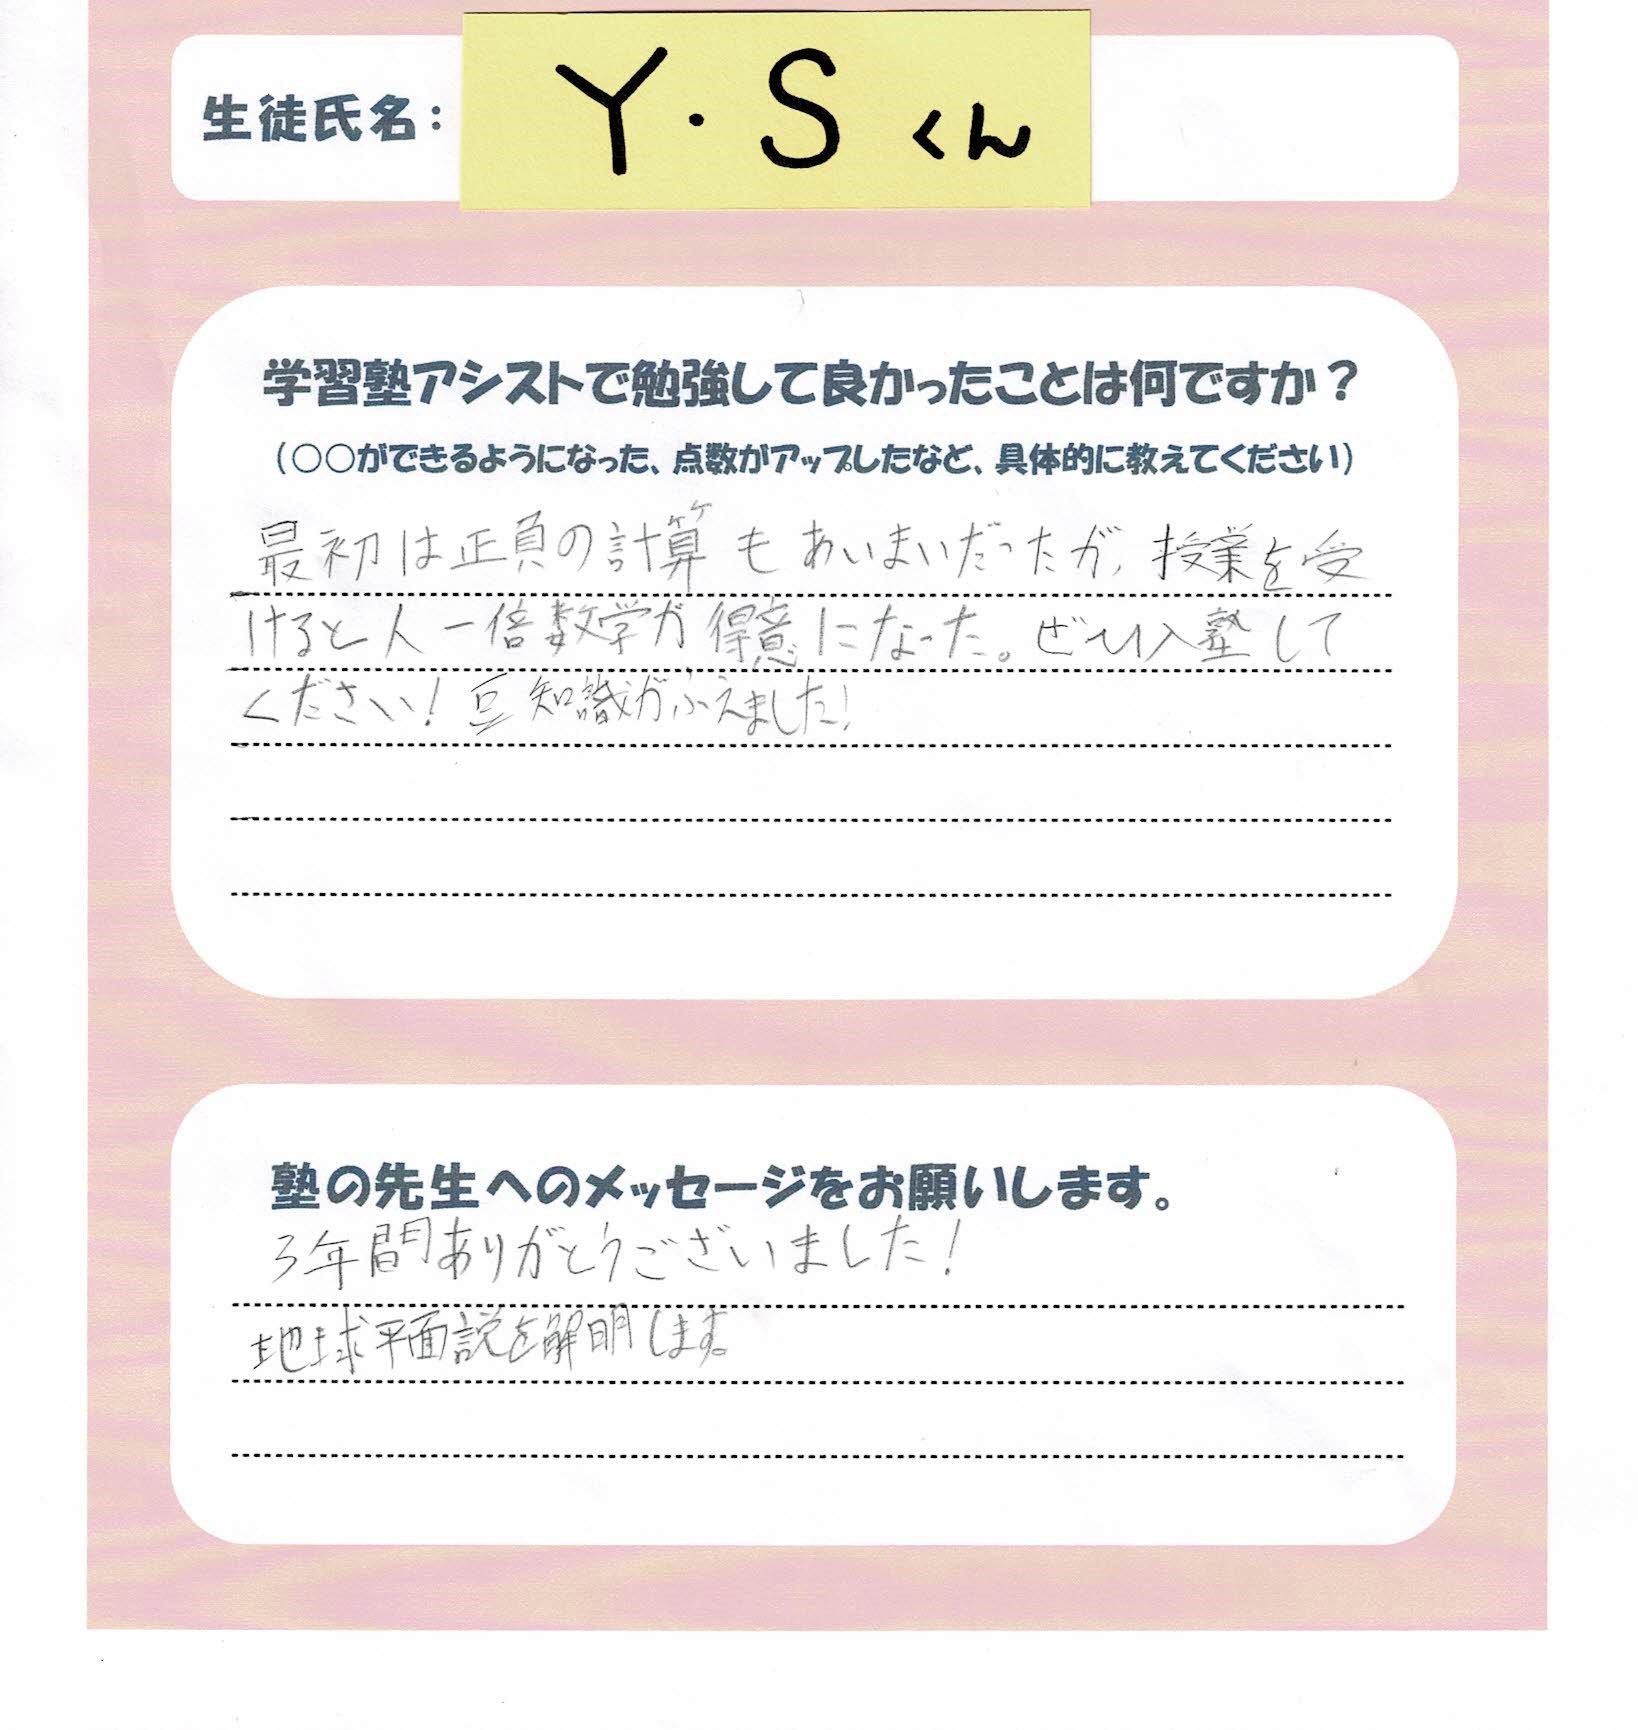 生徒氏名：
Y・Sくん
学習塾アシストで勉強して良かったことは何ですか？
（○○ができるようになった、点数がアップしたなど、具体的に教えてください）
最初は正負の計算もあいまいだったが、授業を受
けると人一倍数学が得意になった。ぜひ入塾して
ください！豆知識がふえました！
塾の先生へのメッセージをお願いします。
3年間ありがとうございました！
地球平面説を解明します。